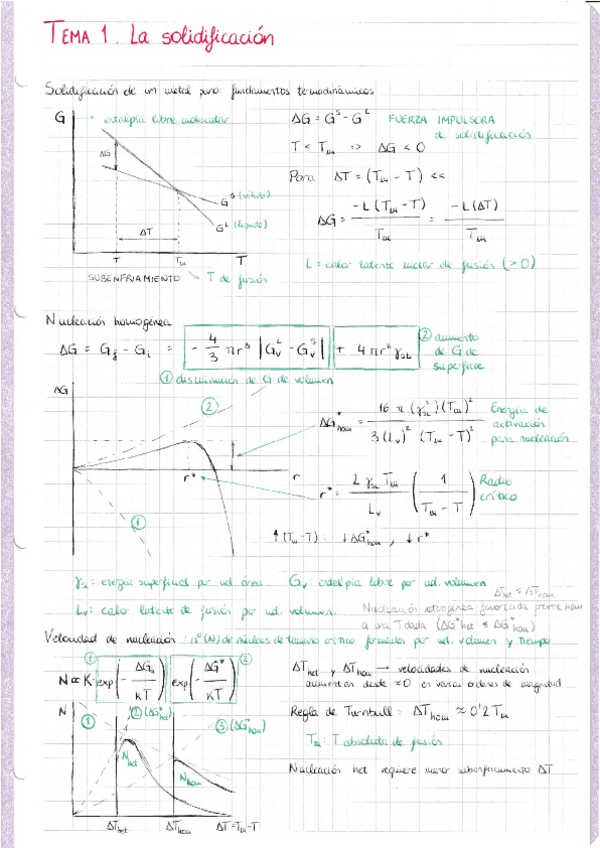 TEMA 1. La solidificación
Solidificación de un metal puro: fundamentos termodinámicos
G
entalpía libre molecular
ΔG
G^S (sólido)
G^L (líquido)
ΔT
T
T_M
T
SUBENFRIAMIENTO
T de fusión
ΔG = G^S - G^L FUERZA IMPULSORA
de solidificación
T < T_M => ΔG < 0
Para ΔT = (T_M - T) <<
ΔG = -L (T_M - T) / T_M = -L (ΔT) / T_M
L = calor latente molar de fusión (> 0)
Nucleación homogénea
ΔG = G_f - G_i = - 4/3 πr³ |G_V^L - G_V^S| + 4πr² γ_SL
② aumento
de G de
superficie
① disminución de G de volumen
ΔG
②
①
r*
r
ΔG*_hom = 16 π (γ_SL²) (T_M)² / 3 (L_V)² (T_M - T)²
Energía de
activación
para nucleación
r* = 2 γ_SL T_M / L_V (1 / T_M - T)
Radio
crítico
↑ (T_M - T) : ↓ ΔG*_hom , ↓ r*
γ_SL : energía superficial por ud. área. G_V : entalpía libre por ud. volumen
L_V : calor latente de fusión por ud. volumen.
Nucleación heterogénea favorecida frente hom
a una T dada (ΔG*het < ΔG*hom)
Velocidad de nucleación : nº (N) de núcleos de tamaño crítico formados por ud. volumen y tiempo
① ②
N ∝ K· exp(- ΔG_a / KT) exp(- ΔG* / KT)
ΔT_het y ΔT_hom → velocidades de nucleación
aumentan desde ≈0 en varios órdenes de magnitud
N
①
② (ΔG*_het)
③ (ΔG*_hom)
N_het
N_hom
ΔT_het
ΔT_hom
ΔT = T_M - T
Regla de Turnbull : ΔT_hom ≈ 0'2 T_M
T_M : T absoluta de fusión
Nucleación het requiere menor subenfriamiento ΔT